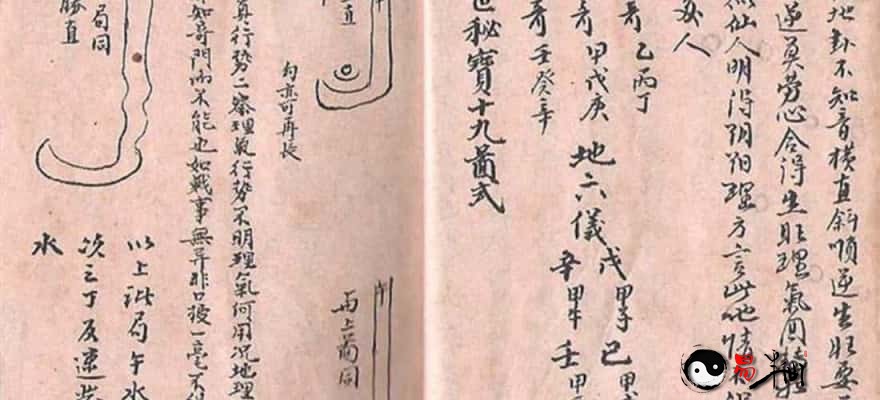 地卦不知音橫直斜順逆生旺要
逆莫勞心合得生旺理氣回
仙人明得阴阳理方言此地情
人
奇 乙丙丁
奇 甲戊庚 地六儀 戊甲子 己甲
奇 壬癸辛 辛甲午 壬甲
秘寶十九箇式
午
上箇同
直
勾亦可再長
真行勢二察理氣行勢不明理氣何用況地理
知奇門而不能也如戰事無异非口授一毫不
局同
勝直
以上批局午水
次之丁及
水
易